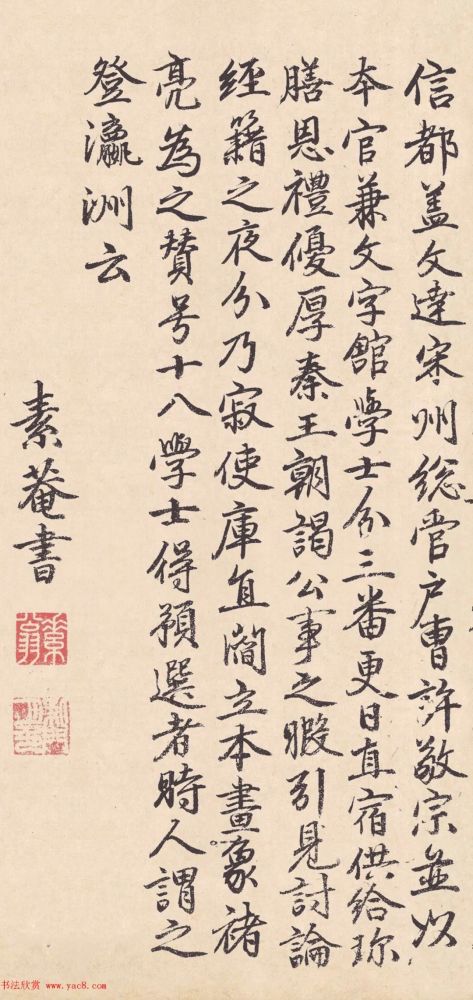 信都盖文達宋州総管户曹許敬宗並以
本官兼文字館學士分三番更日直宿供給珎
膳恩禮優厚秦王朝謁公事之暇引見討論
經籍之夜分乃寂使庫直閻立本畫象褚
亮為之賛号十八學士得預選者時人謂之
登瀛洲云
素菴書
素翁
书法欣赏 www.yac8.com